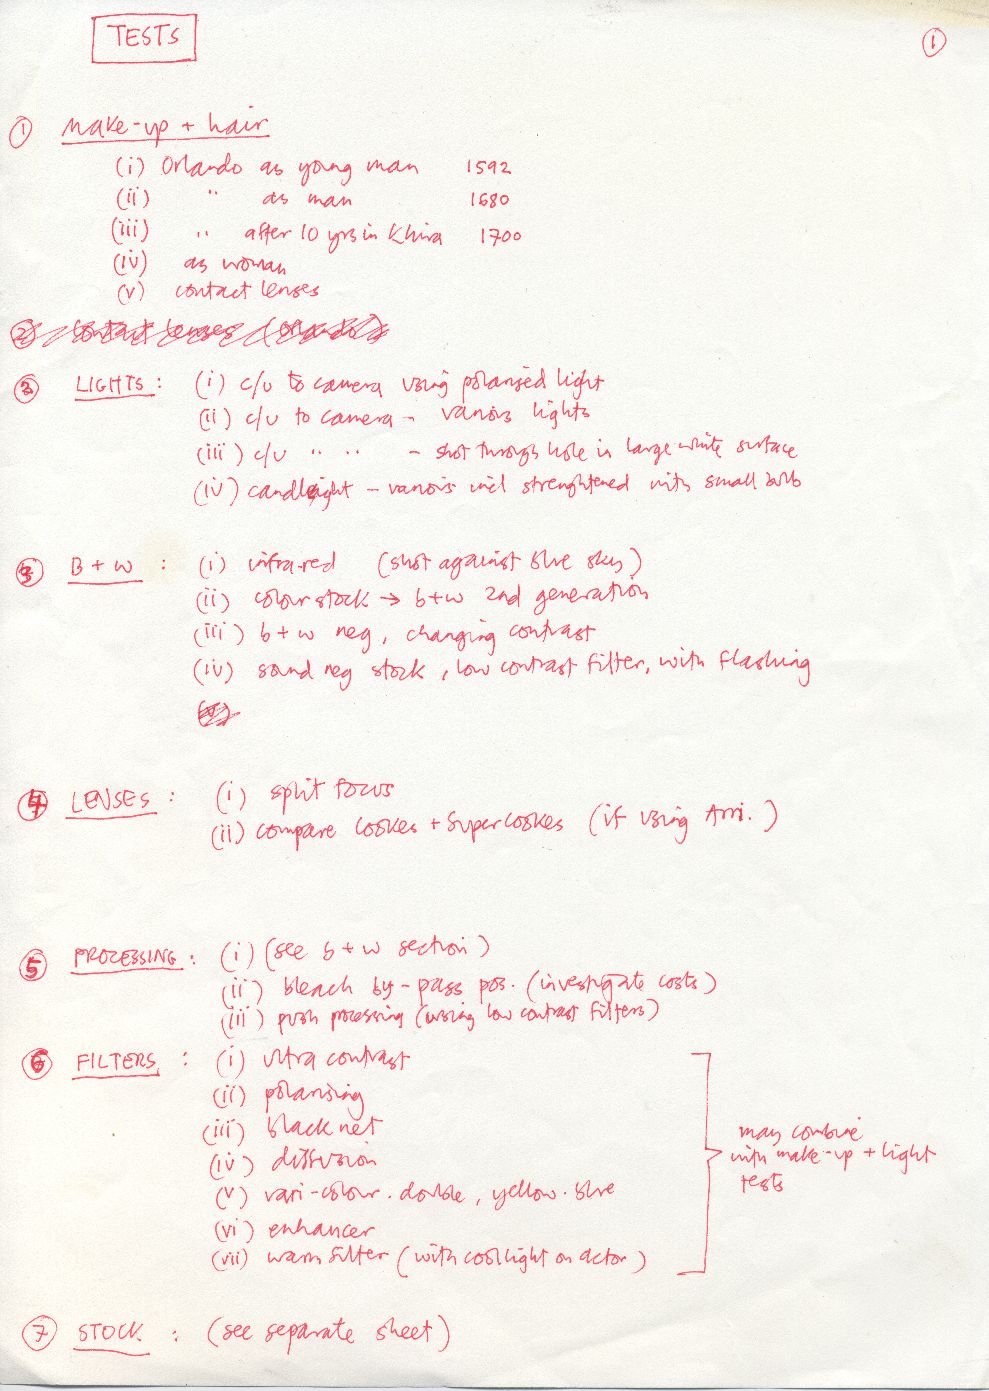 TESTS
1
1 Make-up + hair
(i) Orlando as young man 1592
(ii) " as man 1680
(iii) " after 10 yrs in Khiva 1700
(iv) as woman
(v) contact lenses
2 contact lenses (Orlando)
2 LIGHTS : (i) c/u to camera using polarised light
(ii) c/u to camera - various lights
(iii) c/u " " - shot through hole in large white surface
(iv) candlelight - various incl strenghtened with small bulb
3 B + W : (i) infra-red (shot against blue sky)
(ii) colour stock → b+w 2nd generation
(iii) b+w neg, changing contrast
(iv) sound neg stock, low contrast filter, with flashing
(v)
4 LENSES : (i) split focus
(ii) compare Cookes + Supercookes (if using Arri.)
5 PROCESSING : (i) (see b+w section)
(ii) bleach by-pass pos. (investigate costs)
(iii) push processing (using low contrast filters)
6 FILTERS : (i) ultra contrast
(ii) polarising
(iii) black net
(iv) diffusion
(v) vari-colour. double, yellow. blue
(vi) enhancer
(vii) warm filter (with cool light on actor)
may combine
with make-up + light
tests
7 STOCK : (see separate sheet)